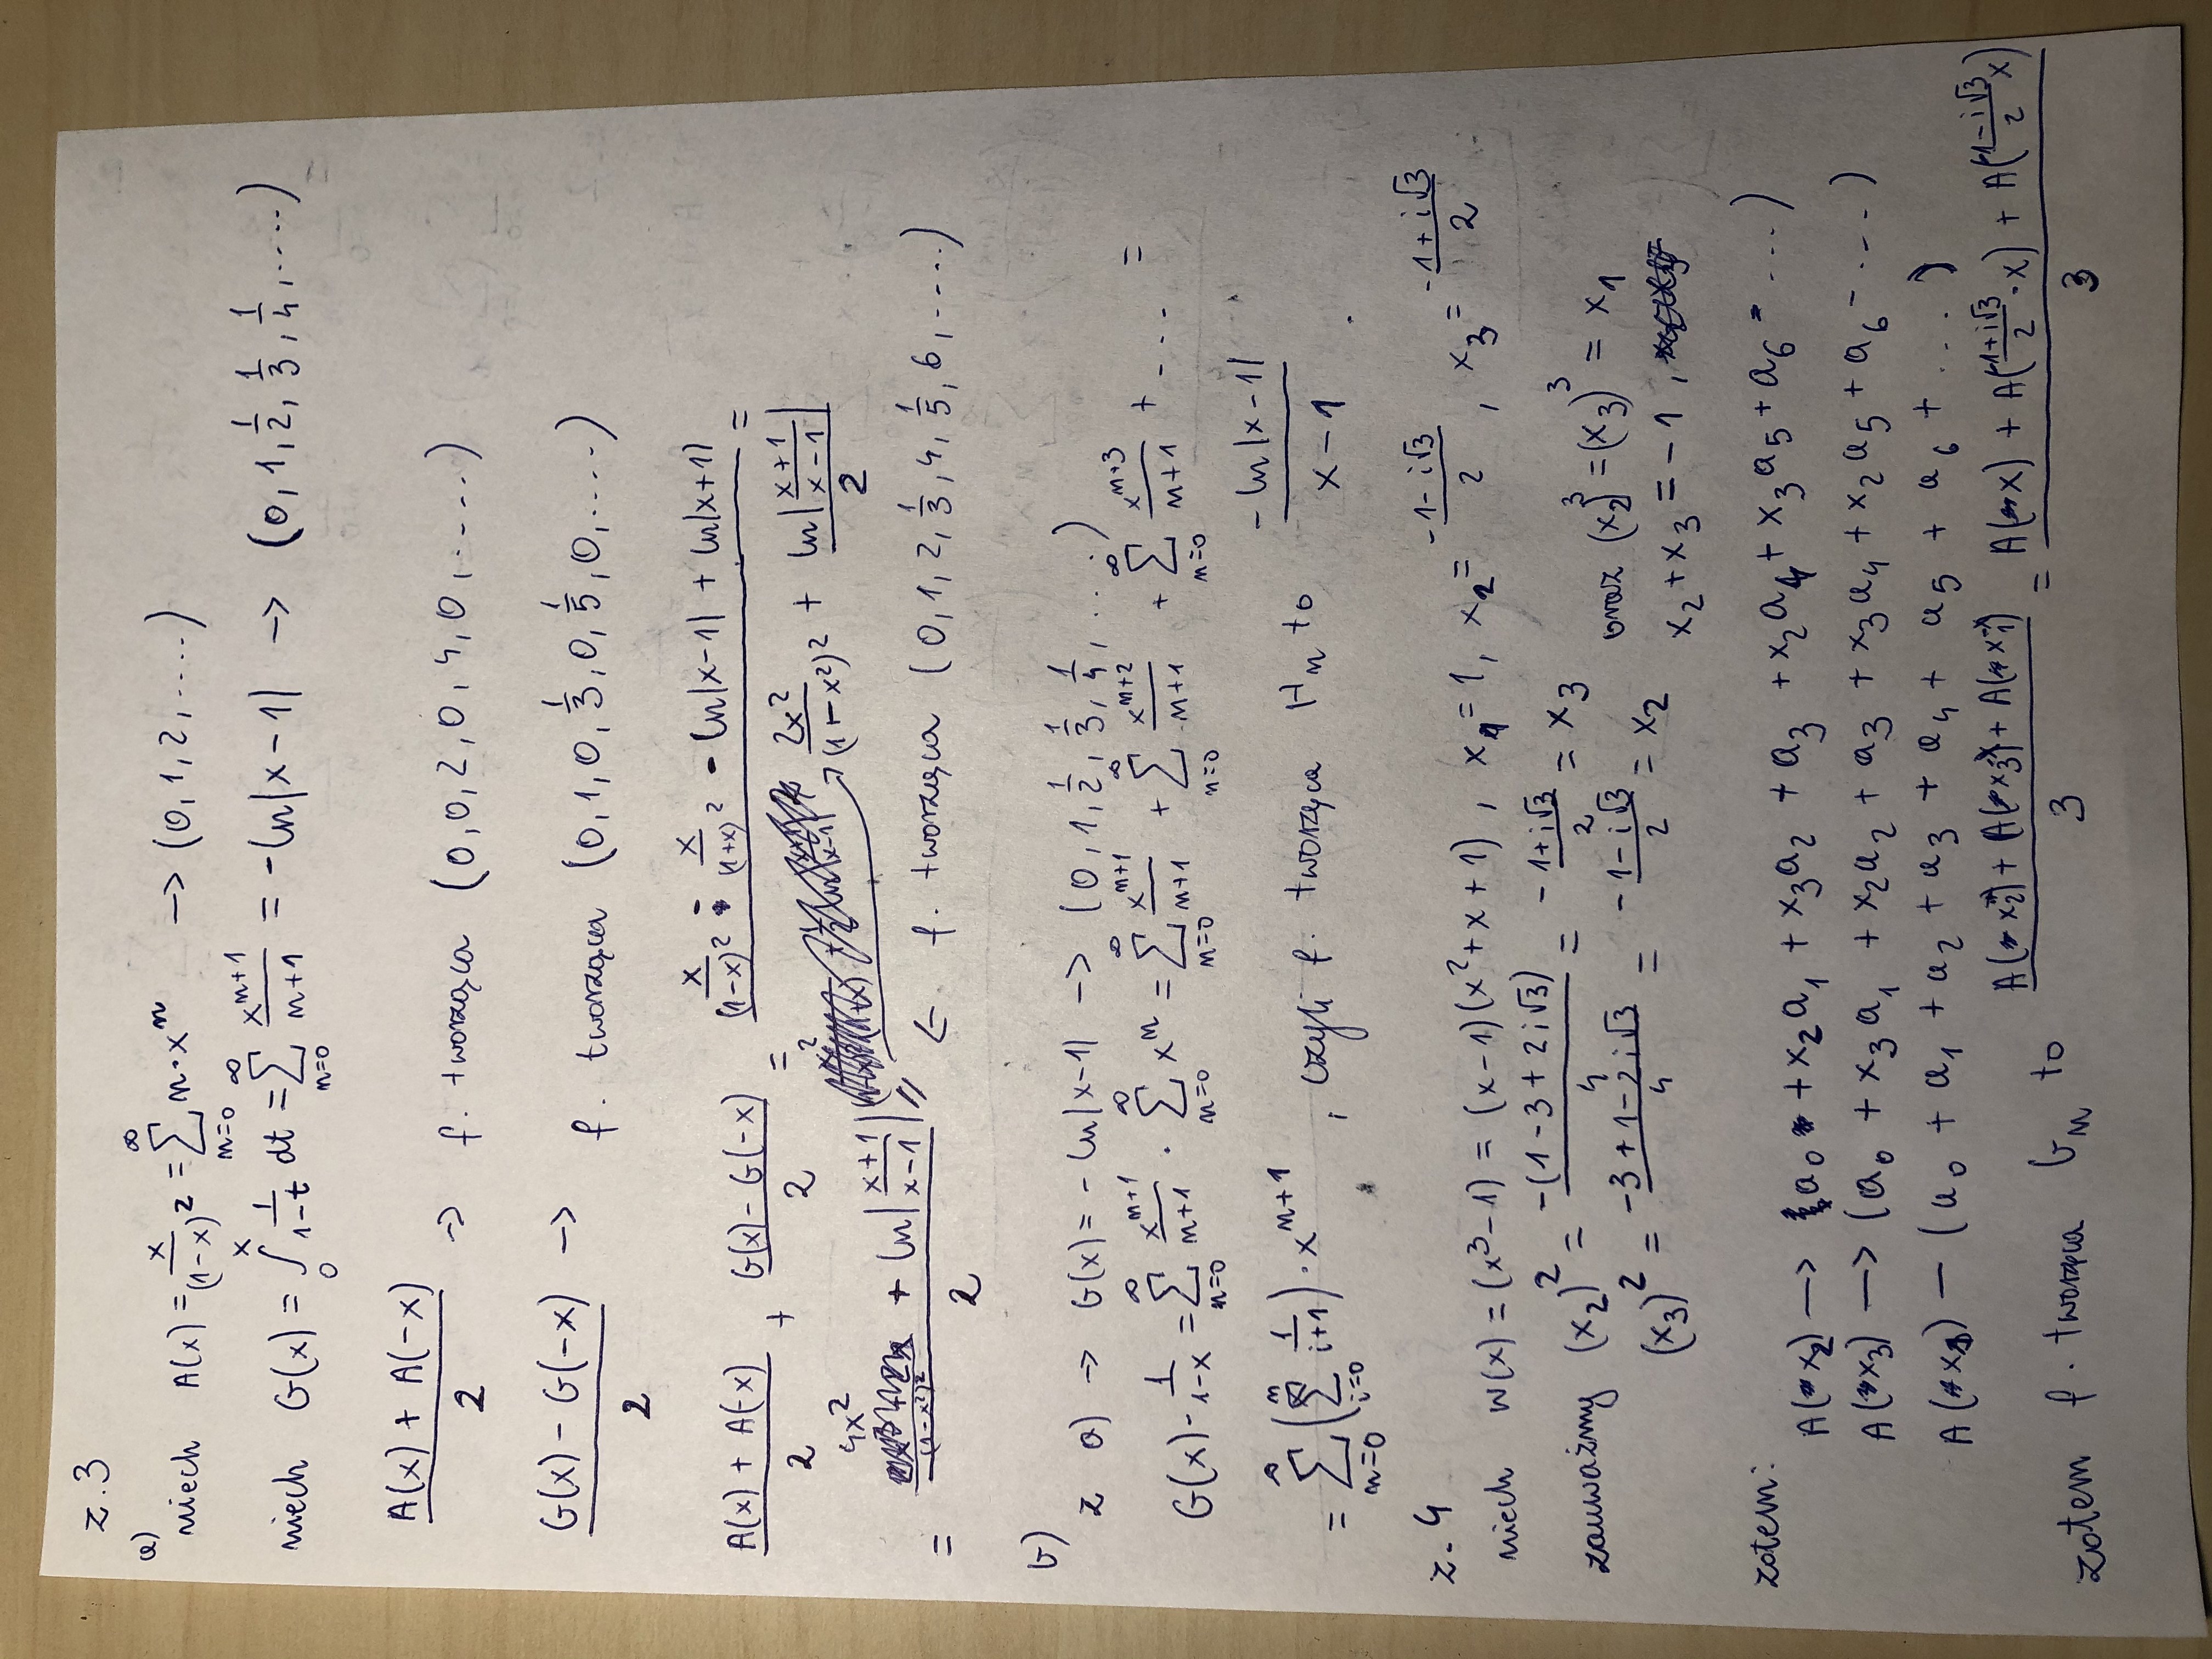 z.3
a)
niech A(x) = x/(1-x)² = ∑_{n=0}^{∞} n·xⁿ → (0, 1, 2, .....)
niech G(x) = ∫_0^x 1/(1-t) dt = ∑_{n=0}^{∞} x^{n+1}/(n+1) = -ln|x-1| → (0, 1, 1/2, 1/3, 1/4, .....)
(A(x) + A(-x))/2 → f. tworząca (0, 0, 2, 0, 4, 0, .....)
(G(x) - G(-x))/2 → f. tworząca (0, 1, 0, 1/3, 0, 1/5, 0, .....)
(A(x) + A(-x))/2 + (G(x) - G(-x))/2 = (x/(1-x)² - x/(1+x)² - ln|x-1| + ln|x+1|)/2 =
2x²/(1-x²)² + ln|(x+1)/(x-1)|/2
= (4x²/(1-x²)² + ln|(x+1)/(x-1)|)/2 ← f. tworząca (0, 1, 2, 1/3, 4, 1/5, 6, .....)
b)
z a) → G(x) = -ln|x-1| → (0, 1, 1/2, 1/3, 1/4, ....)
G(x)·1/(1-x) = ∑_{n=0}^{∞} x^{n+1}/(n+1) · ∑_{n=0}^{∞} xⁿ = ∑_{n=0}^{∞} x^{n+1}/(n+1) + ∑_{n=0}^{∞} x^{n+2}/(n+1) + ∑_{n=0}^{∞} x^{n+3}/(n+1) + ... =
= ∑_{n=0}^{∞} (∑_{i=0}^{n} 1/(i+1)) · x^{n+1}, czyli f. tworząca Hₙ to -ln|x-1|/(x-1)
z.4
niech w(x) = (x³-1) = (x-1)(x²+x+1), x₁=1, x₂ = (-1-i√3)/2, x₃ = (-1+i√3)/2
zauważmy (x₂)² = -(1-3+2i√3)/4 = (-1+i√3)/2 = x₃
oraz (x₂)³ = (x₃)³ = x₁
(x₃)² = (-3+1-2i√3)/4 = (-1-i√3)/2 = x₂
x₂+x₃ = -1,
zatem:
A(x₂) → (a₀ + x₂a₁ + x₃a₂ + a₃ + x₂a₄ + x₃a₅ + a₆ - ...)
A(x₃) → (a₀ + x₃a₁ + x₂a₂ + a₃ + x₃a₄ + x₂a₅ + a₆ - ...)
A(x₁) — (a₀ + a₁ + a₂ + a₃ + a₄ + a₅ + a₆ + ...)
zatem f. tworząca Gₙ to (A(x₂) + A(x₃) + A(x₁))/3 = (A(x) + A((-1+i√3)/2·x) + A((-1-i√3)/2 x))/3